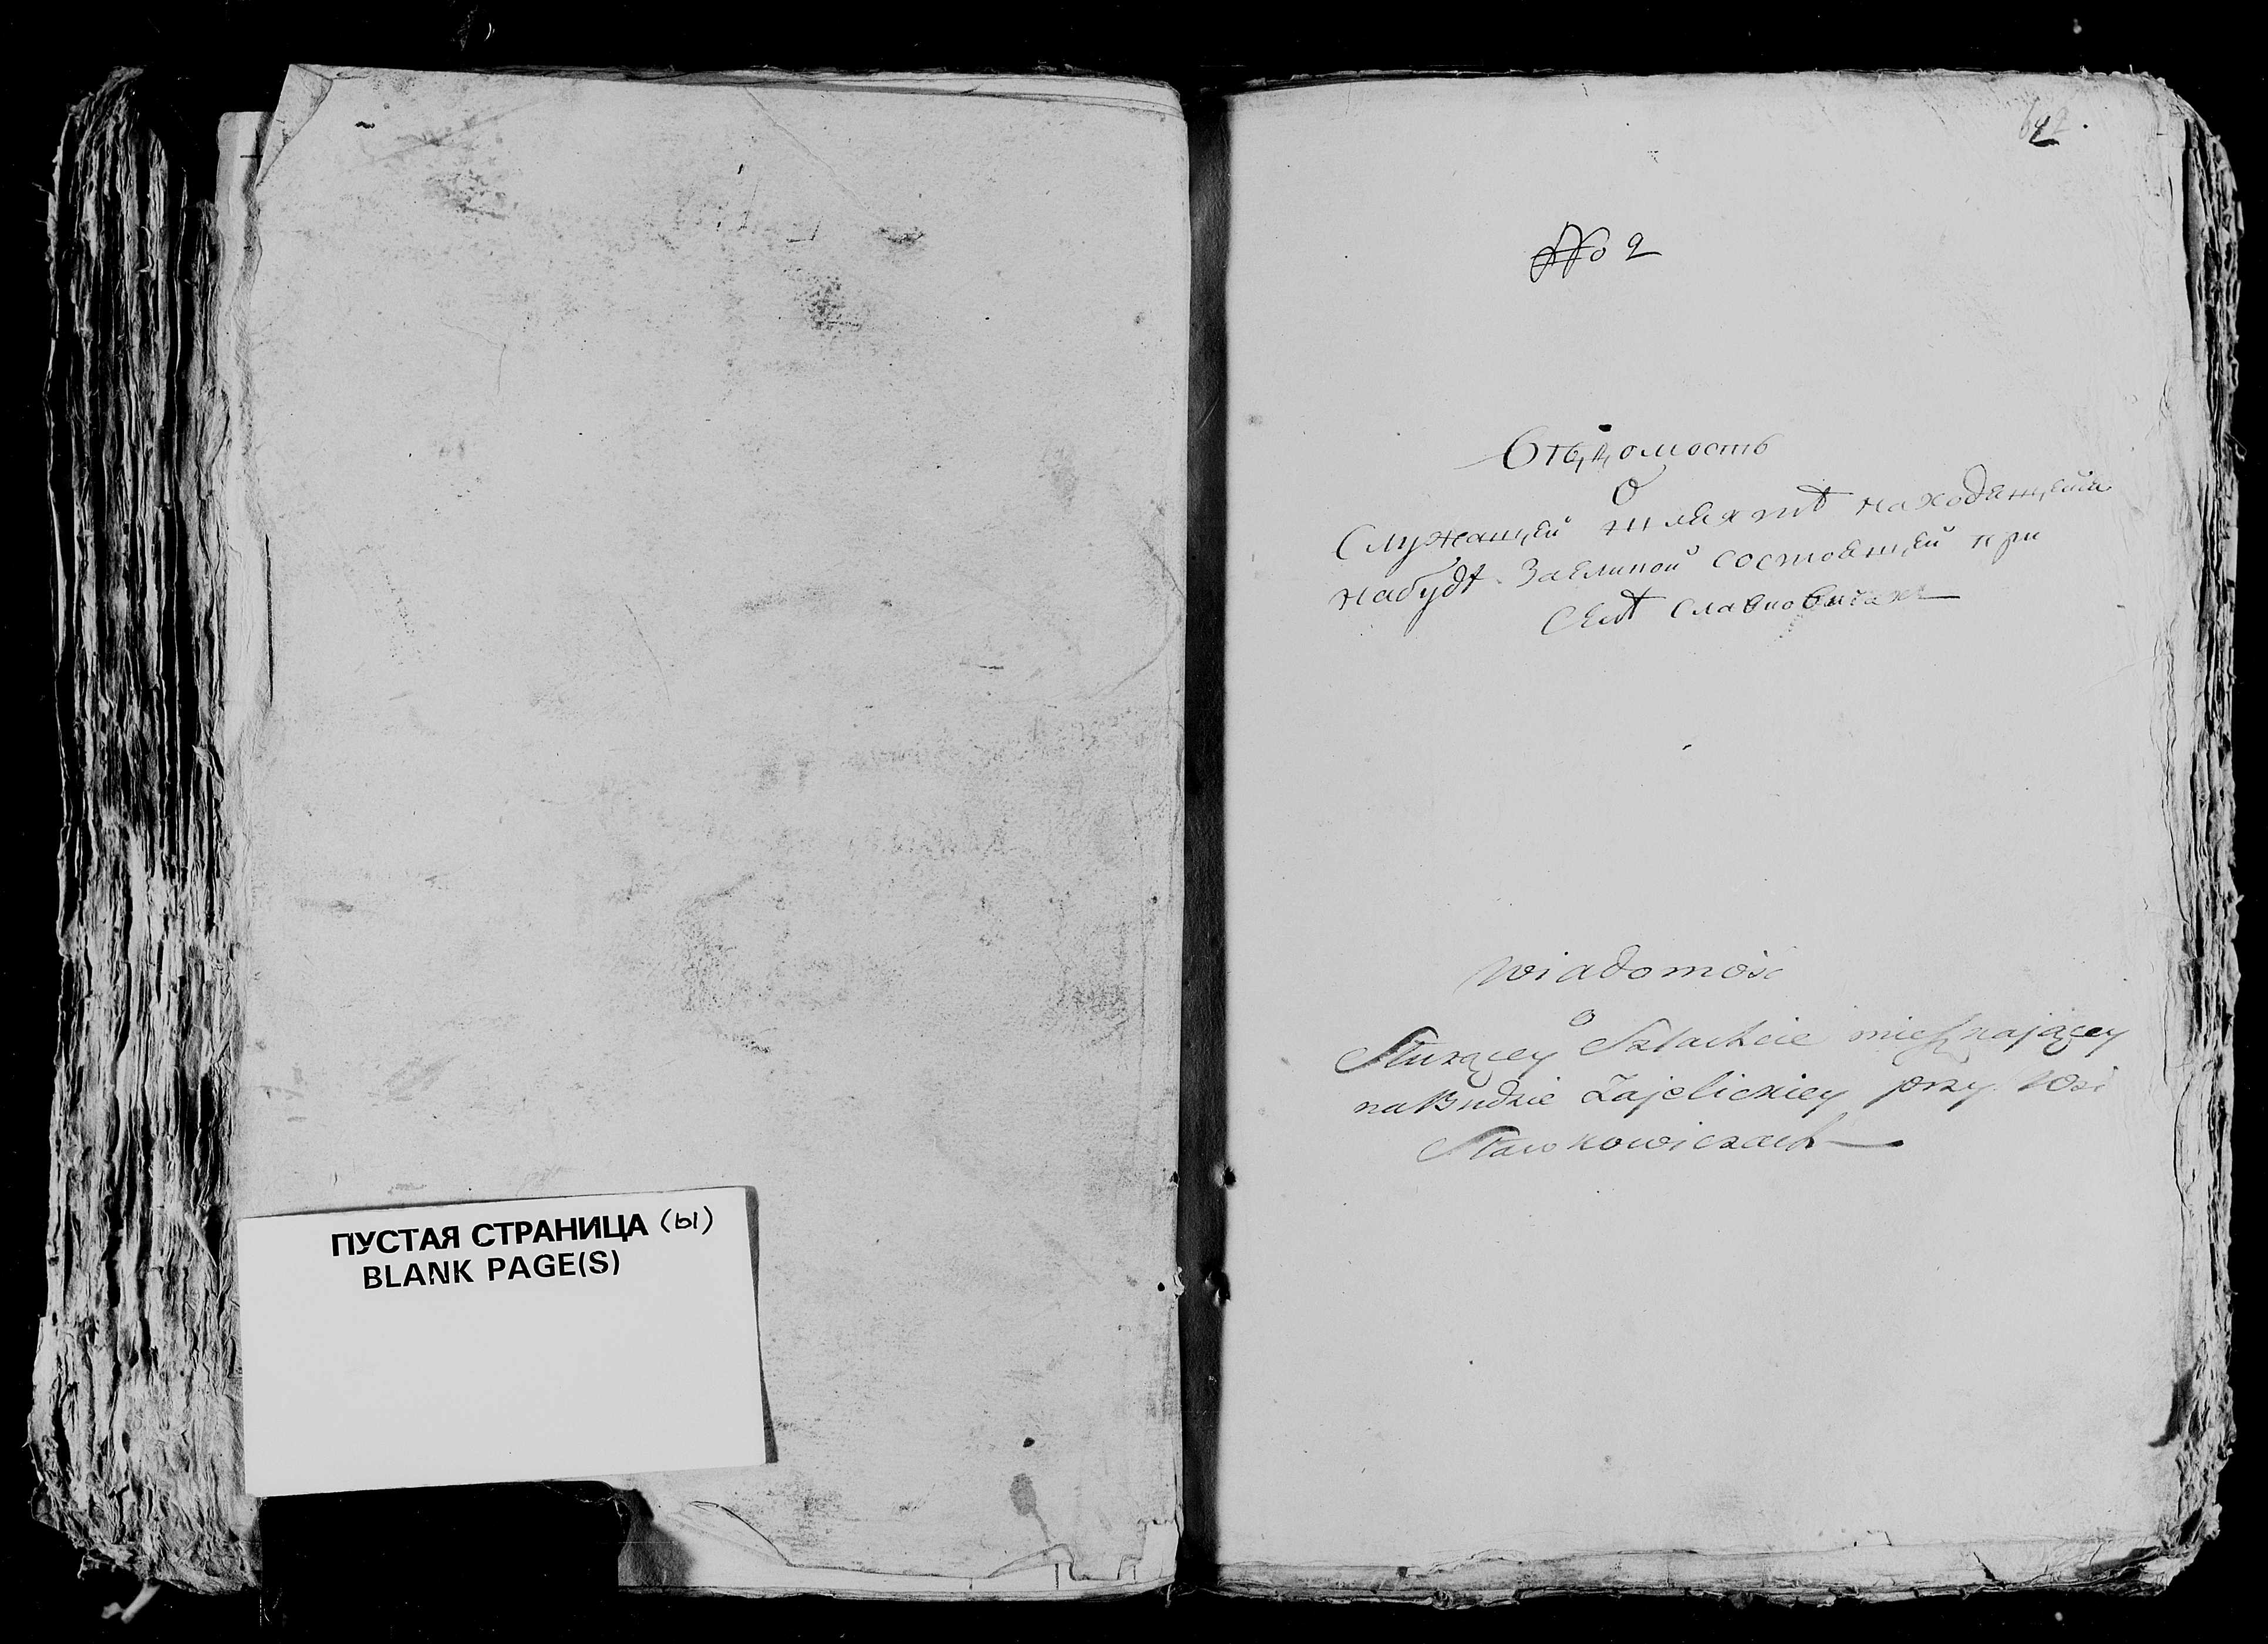 ПУСТАЯ СТРАНИЦА (ы)
BLANK PAGE(S)
No 2
Вѣдомость
О
Служащей шляхтѣ находящейся
на будѣ состоящей при
селѣ Славковичахъ
Wiadomość
o
Służącey Szlachcie mieszkającey
na Budzie Zajelickiey przy Wsi
Sławkowiczach